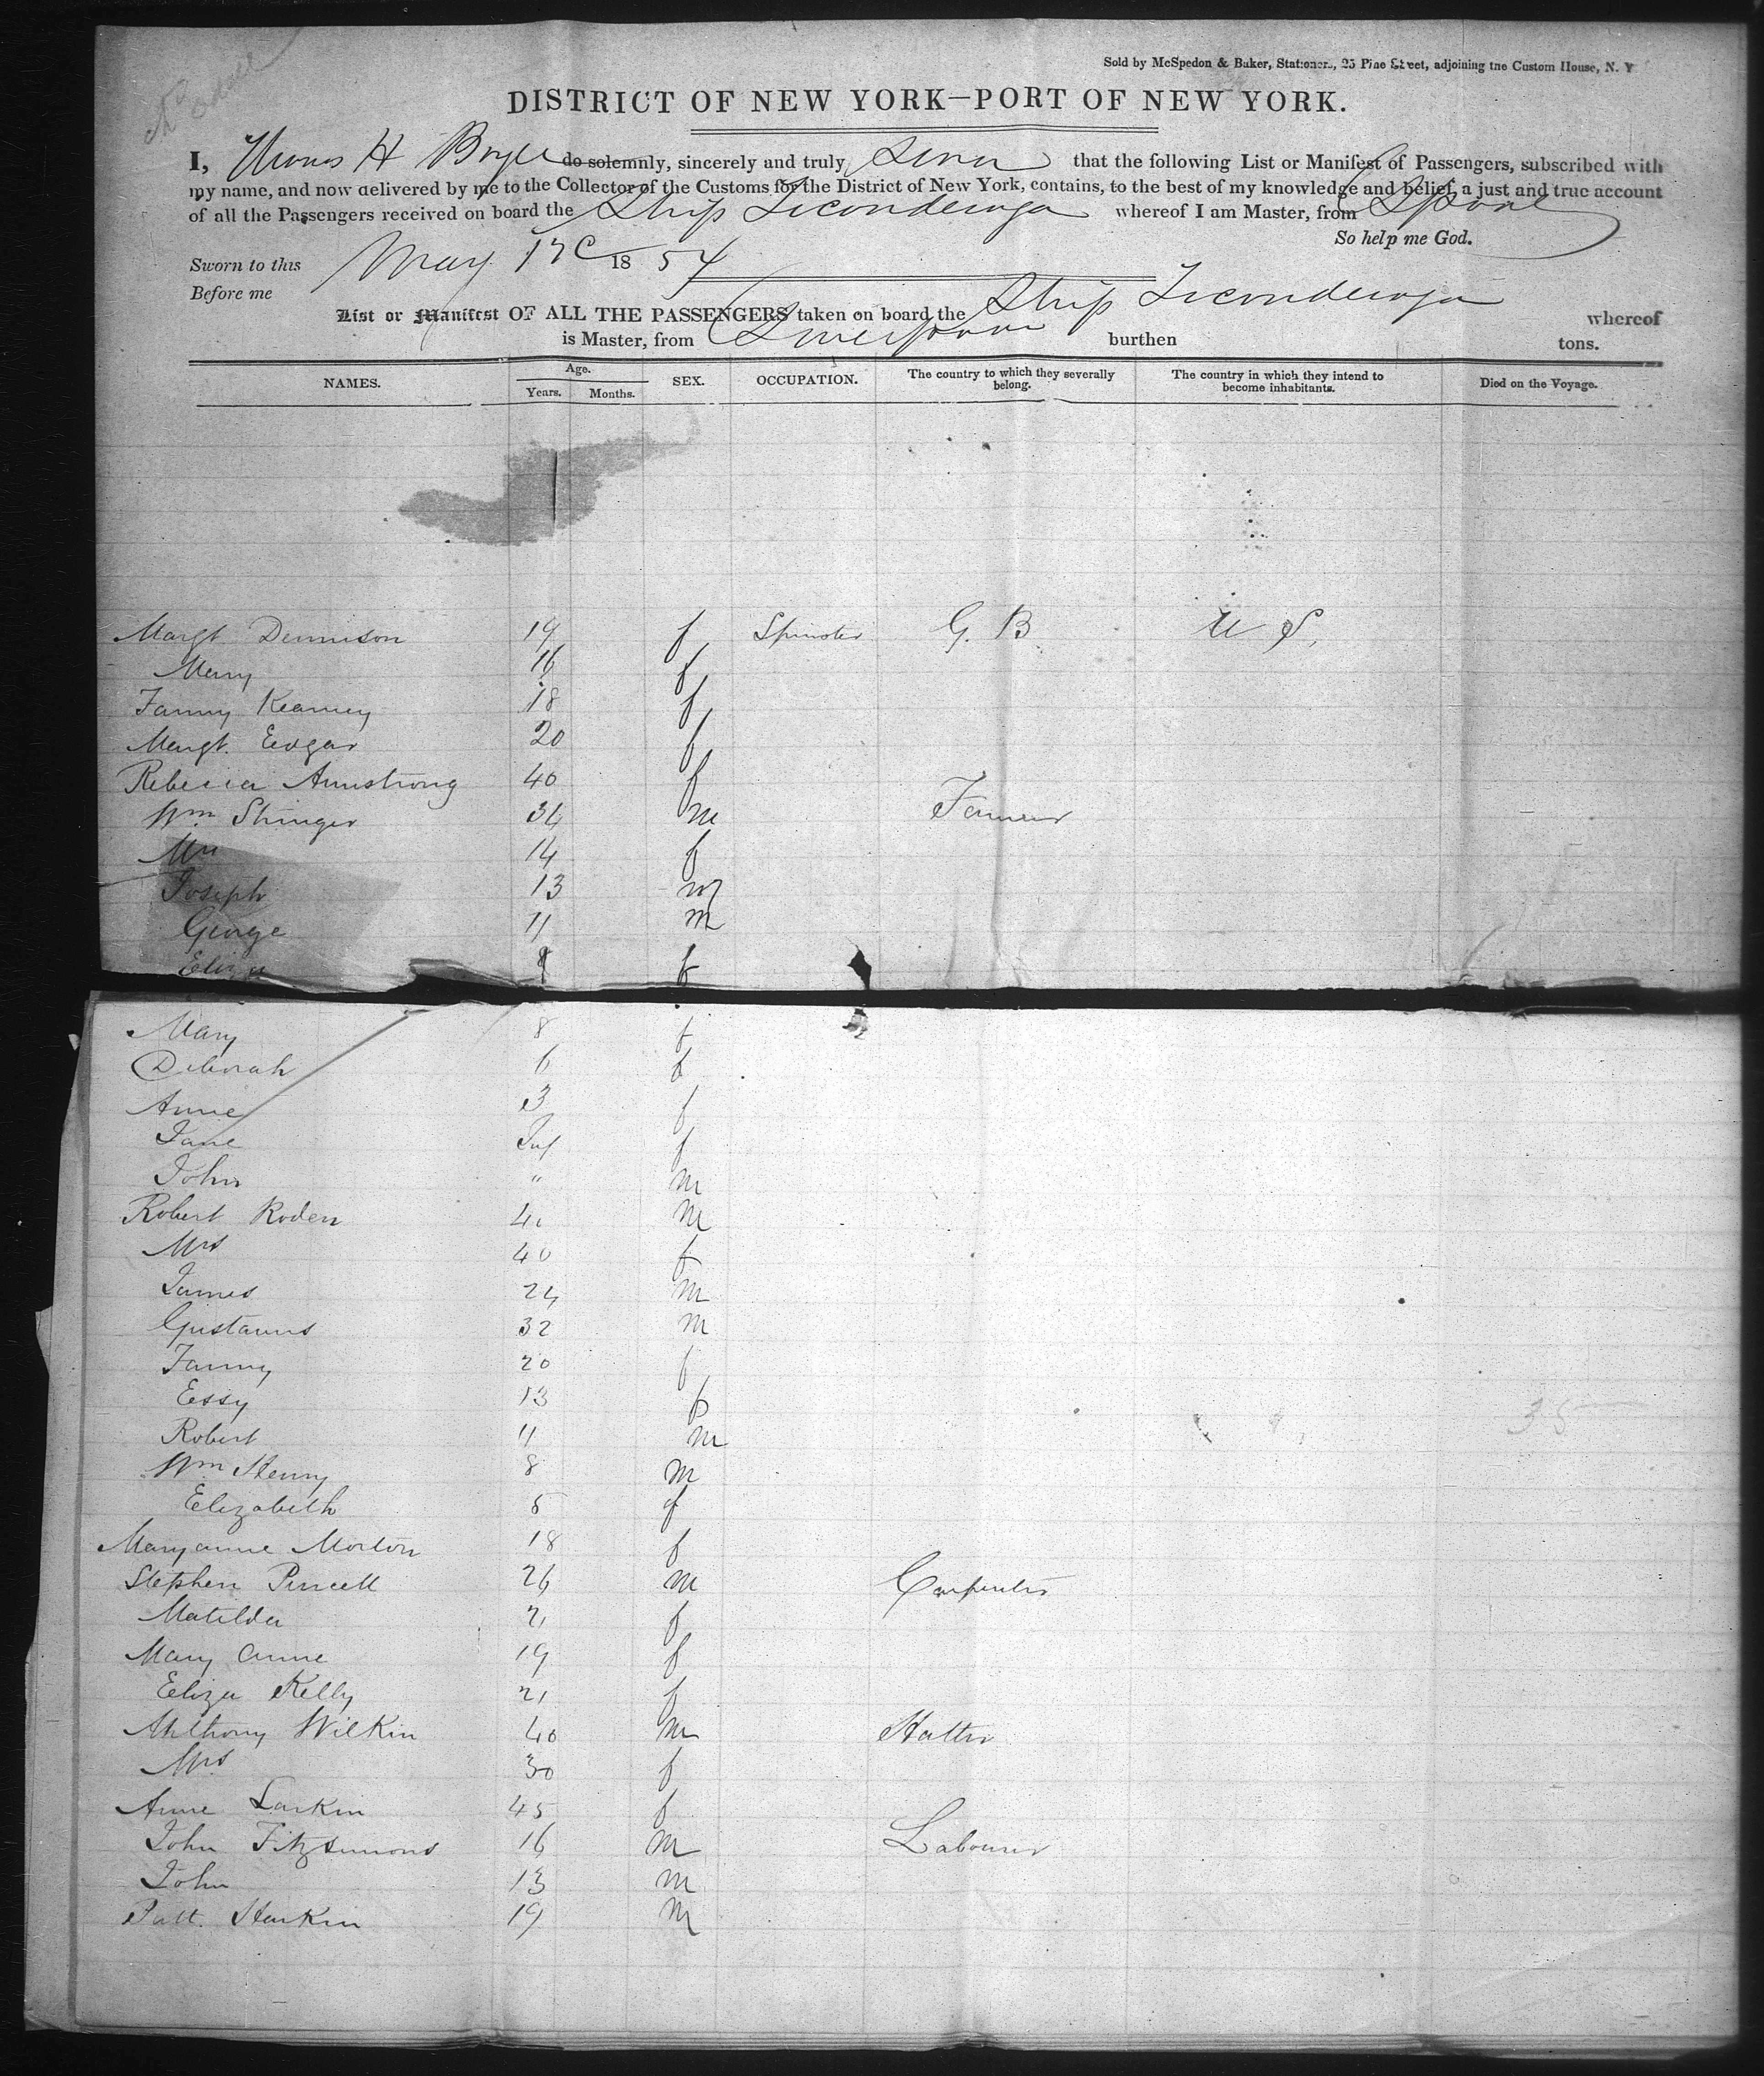 Sold by McSpedon & Baker, Stationers, 25 Pine Street, adjoining the Custom House, N. Y
DISTRICT OF NEW YORK—PORT OF NEW YORK.
I, Thomas H Boyle do solemnly, sincerely and truly that the following List or Manifest of Passengers, subscribed with
my name, and now delivered by me to the Collector of the Customs for the District of New York, contains, to the best of my knowledge and belief, a just and true account
of all the Passengers received on board the Ship Ticonderoga whereof I am Master, from LPool
So help me God.
Sworn to this May 18 54
Before me
List or Manifest OF ALL THE PASSENGERS taken on board the Ship Ticonderoga whereof
is Master, from Liverpool burthen tons.
NAMES. Age. Years. Months. SEX. OCCUPATION. The country to which they severally belong. The country in which they intend to become inhabitants. Died on the Voyage.
Margt Dennison 19 f Spinster G. B U S.
Mary 16 f
Fanny Kearney 18 f
Margt. Edgar 20 f
Rebecca Armstrong 40 f
Wm Stringer 34 m Farmer
Mrs 14 f
Joseph 13 m
George 11 m
Eliza 9 f
Mary 8 f
Deborah 6 f
Anne 3 f
Jane Inf f
John " m
Robert Roden 41 m
Mrs 40 f
James 24 m
Gustavus 32 m
Fanny 20 f
Essy 13 f
Robert 11 m 35
Wm Henry 8 m
Elizabeth 5 f
Maryanne Morton 18 f
Stephen Purcell 26 m Carpenter
Matilda 21 f
Mary Anne 19 f
Eliza Kelly 21 f
Anthony Wilkin 40 m Hatter
Mrs 30 f
Anne Larkin 45 f
John Fitzsimons 16 m Labourer
John 13 m
Patt. Harkin 19 m